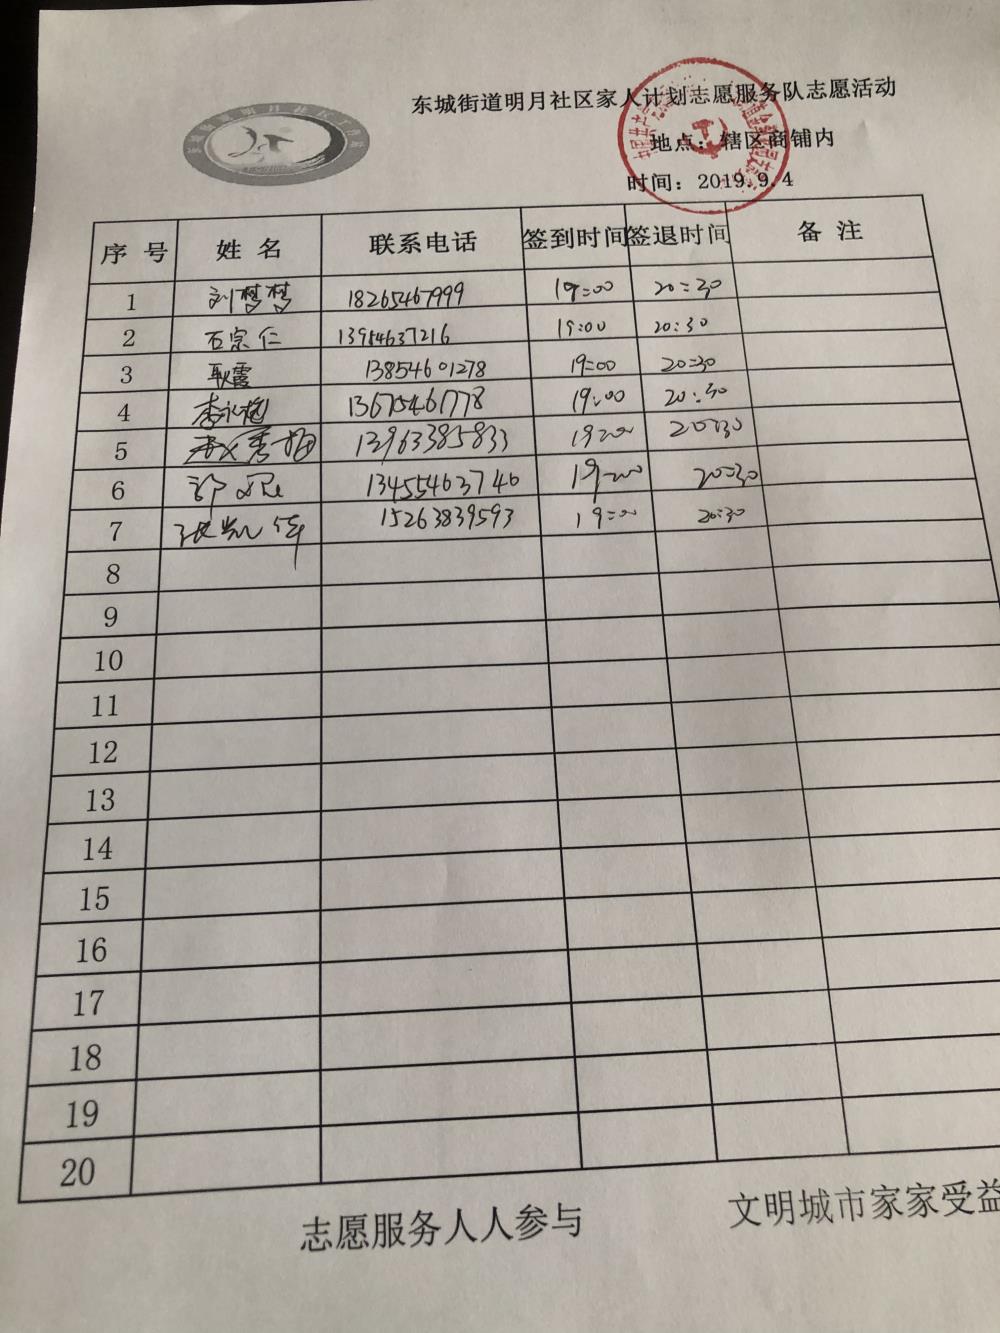 东城街道明月社区家人计划志愿服务队志愿活动
地点：辖区商铺内
时间：2019.9.4
序号 姓名 联系电话 签到时间 签退时间 备注
1 刘梦梦 18265467999 19:00 20:30
2 石宗仁 13954637216 19:00 20:30
3 耿霞 13854601278 19:00 20:30
4 李永梅 13675461778 19:00 20:30
5 赵秀梅 13963385833 19:00 20:30
6 13455463746 19:00 20:30
7 张凯 15263839593 19:00 20:30
8
9
10
11
12
13
14
15
16
17
18
19
20
志愿服务人人参与 文明城市家家受益